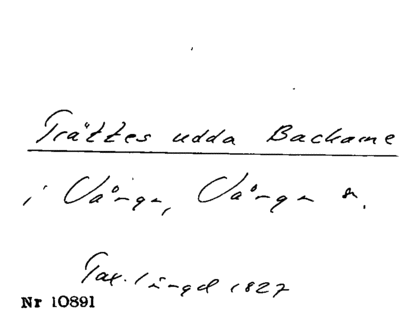 Trättes udda Backarne
i Vånga, Vånga sn.
Tax. längd 1827
Nr 10891